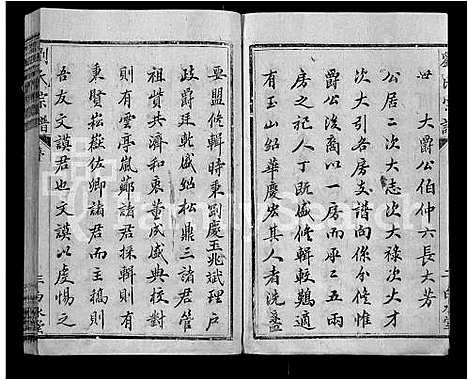 世大爵公伯仲六長大芳
公居二次大志次大祿次大才
次大引各房支譜向係分修惟
爵公後裔以一房而承二五兩
房之祀人丁旣盛修輯較難適
有玉山紹華慶宏其人者洗盞
要盟倏輯時東劉慶玉兆斌理戶
政爵廷乾盛紹松鼎三諸君管
祖費共濟和衷董成盛典校對
則有雲亭嵐薌諸君採輯則有
東賢崧嶽佐卿諸君而主稿則
吾友文謨君也文謨以虔惕之
劉氏宗譜